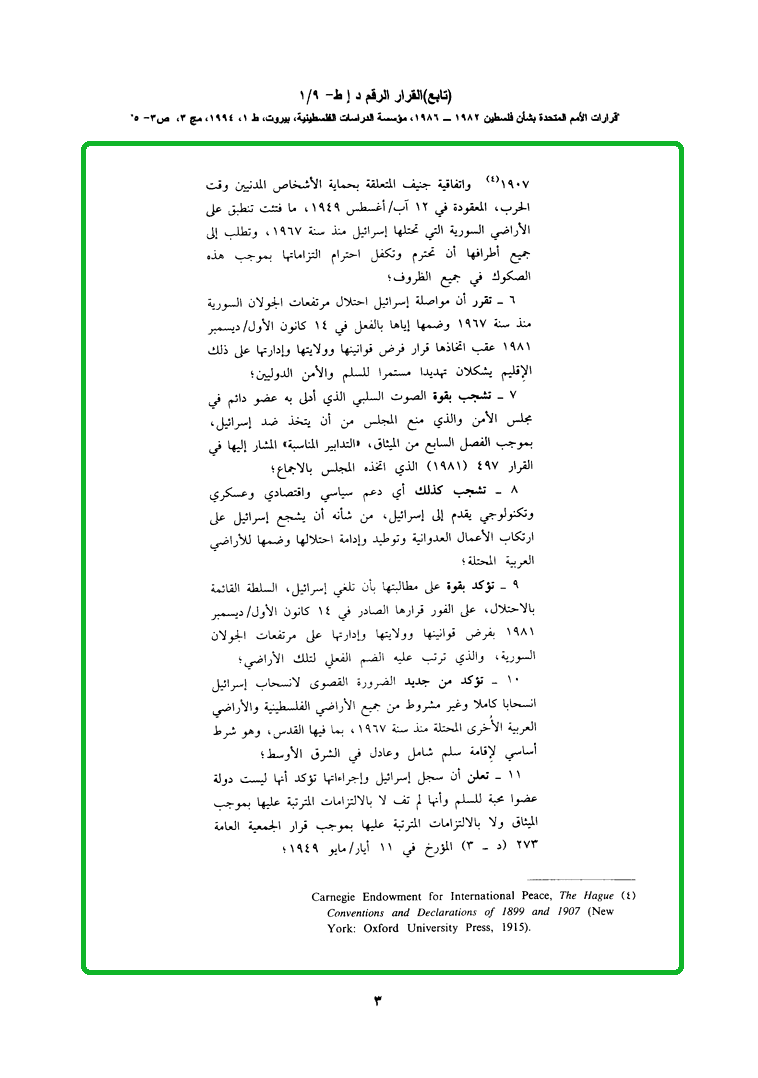 (تابع)القرار الرقم د إ ط- ١/٩
"قرارات الأمم المتحدة بشأن فلسطين ١٩٨٢ ــ ١٩٨٦، مؤسسة الدراسات الفلسطينية، بيروت، ط ١، ١٩٩٤، مج ٣، ص٣- ٥"
١٩٠٧(٤) واتفاقية جنيف المتعلقة بحماية الأشخاص المدنيين وقت
الحرب، المعقودة في ١٢ آب/أغسطس ١٩٤٩، ما فتئت تنطبق على
الأراضي السورية التي تحتلها إسرائيل منذ سنة ١٩٦٧، وتطلب إلى
جميع أطرافها أن تحترم وتكفل احترام التزاماتها بموجب هذه
الصكوك في جميع الظروف؛
٦ ـ تقرر أن مواصلة إسرائيل احتلال مرتفعات الجولان السورية
منذ سنة ١٩٦٧ وضمها إياها بالفعل في ١٤ كانون الأول/ديسمبر
١٩٨١ عقب اتخاذها قرار فرض قوانينها وولايتها وإدارتها على ذلك
الإقليم يشكلان تهديدا مستمرا للسلم والأمن الدوليين؛
٧ ـ تشجب بقوة الصوت السلبي الذي أدلى به عضو دائم في
مجلس الأمن والذي منع المجلس من أن يتخذ ضد إسرائيل،
بموجب الفصل السابع من الميثاق، «التدابير المناسبة» المشار إليها في
القرار ٤٩٧ (١٩٨١) الذي اتخذه المجلس بالاجماع؛
٨ ـ تشجب كذلك أي دعم سياسي واقتصادي وعسكري
وتكنولوجي يقدم إلى إسرائيل، من شأنه أن يشجع إسرائيل على
ارتكاب الأعمال العدوانية وتوطيد وإدامة احتلالها وضمها للأراضي
العربية المحتلة؛
٩ ـ تؤكد بقوة على مطالبتها بأن تلغي إسرائيل، السلطة القائمة
بالاحتلال، على الفور قرارها الصادر في ١٤ كانون الأول/ديسمبر
١٩٨١ بفرض قوانينها وولايتها وإدارتها على مرتفعات الجولان
السورية، والذي ترتب عليه الضم الفعلي لتلك الأراضي؛
١٠ ـ تؤكد من جديد الضرورة القصوى لانسحاب إسرائيل
انسحابا كاملا وغير مشروط من جميع الأراضي الفلسطينية والأراضي
العربية الأخرى المحتلة منذ سنة ١٩٦٧، بما فيها القدس، وهو شرط
أساسي لإقامة سلم شامل وعادل في الشرق الأوسط؛
١١ ـ تعلن أن سجل إسرائيل وإجراءاتها تؤكد أنها ليست دولة
عضوا محبة للسلم وأنها لم تف لا بالالتزامات المترتبة عليها بموجب
الميثاق ولا بالالتزامات المترتبة عليها بموجب قرار الجمعية العامة
٢٧٣ (د ـ ٣) المؤرخ في ١١ أيار/مايو ١٩٤٩؛
Carnegie Endowment for International Peace, The Hague (٤)
Conventions and Declarations of 1899 and 1907 (New
York: Oxford University Press, 1915).
٣